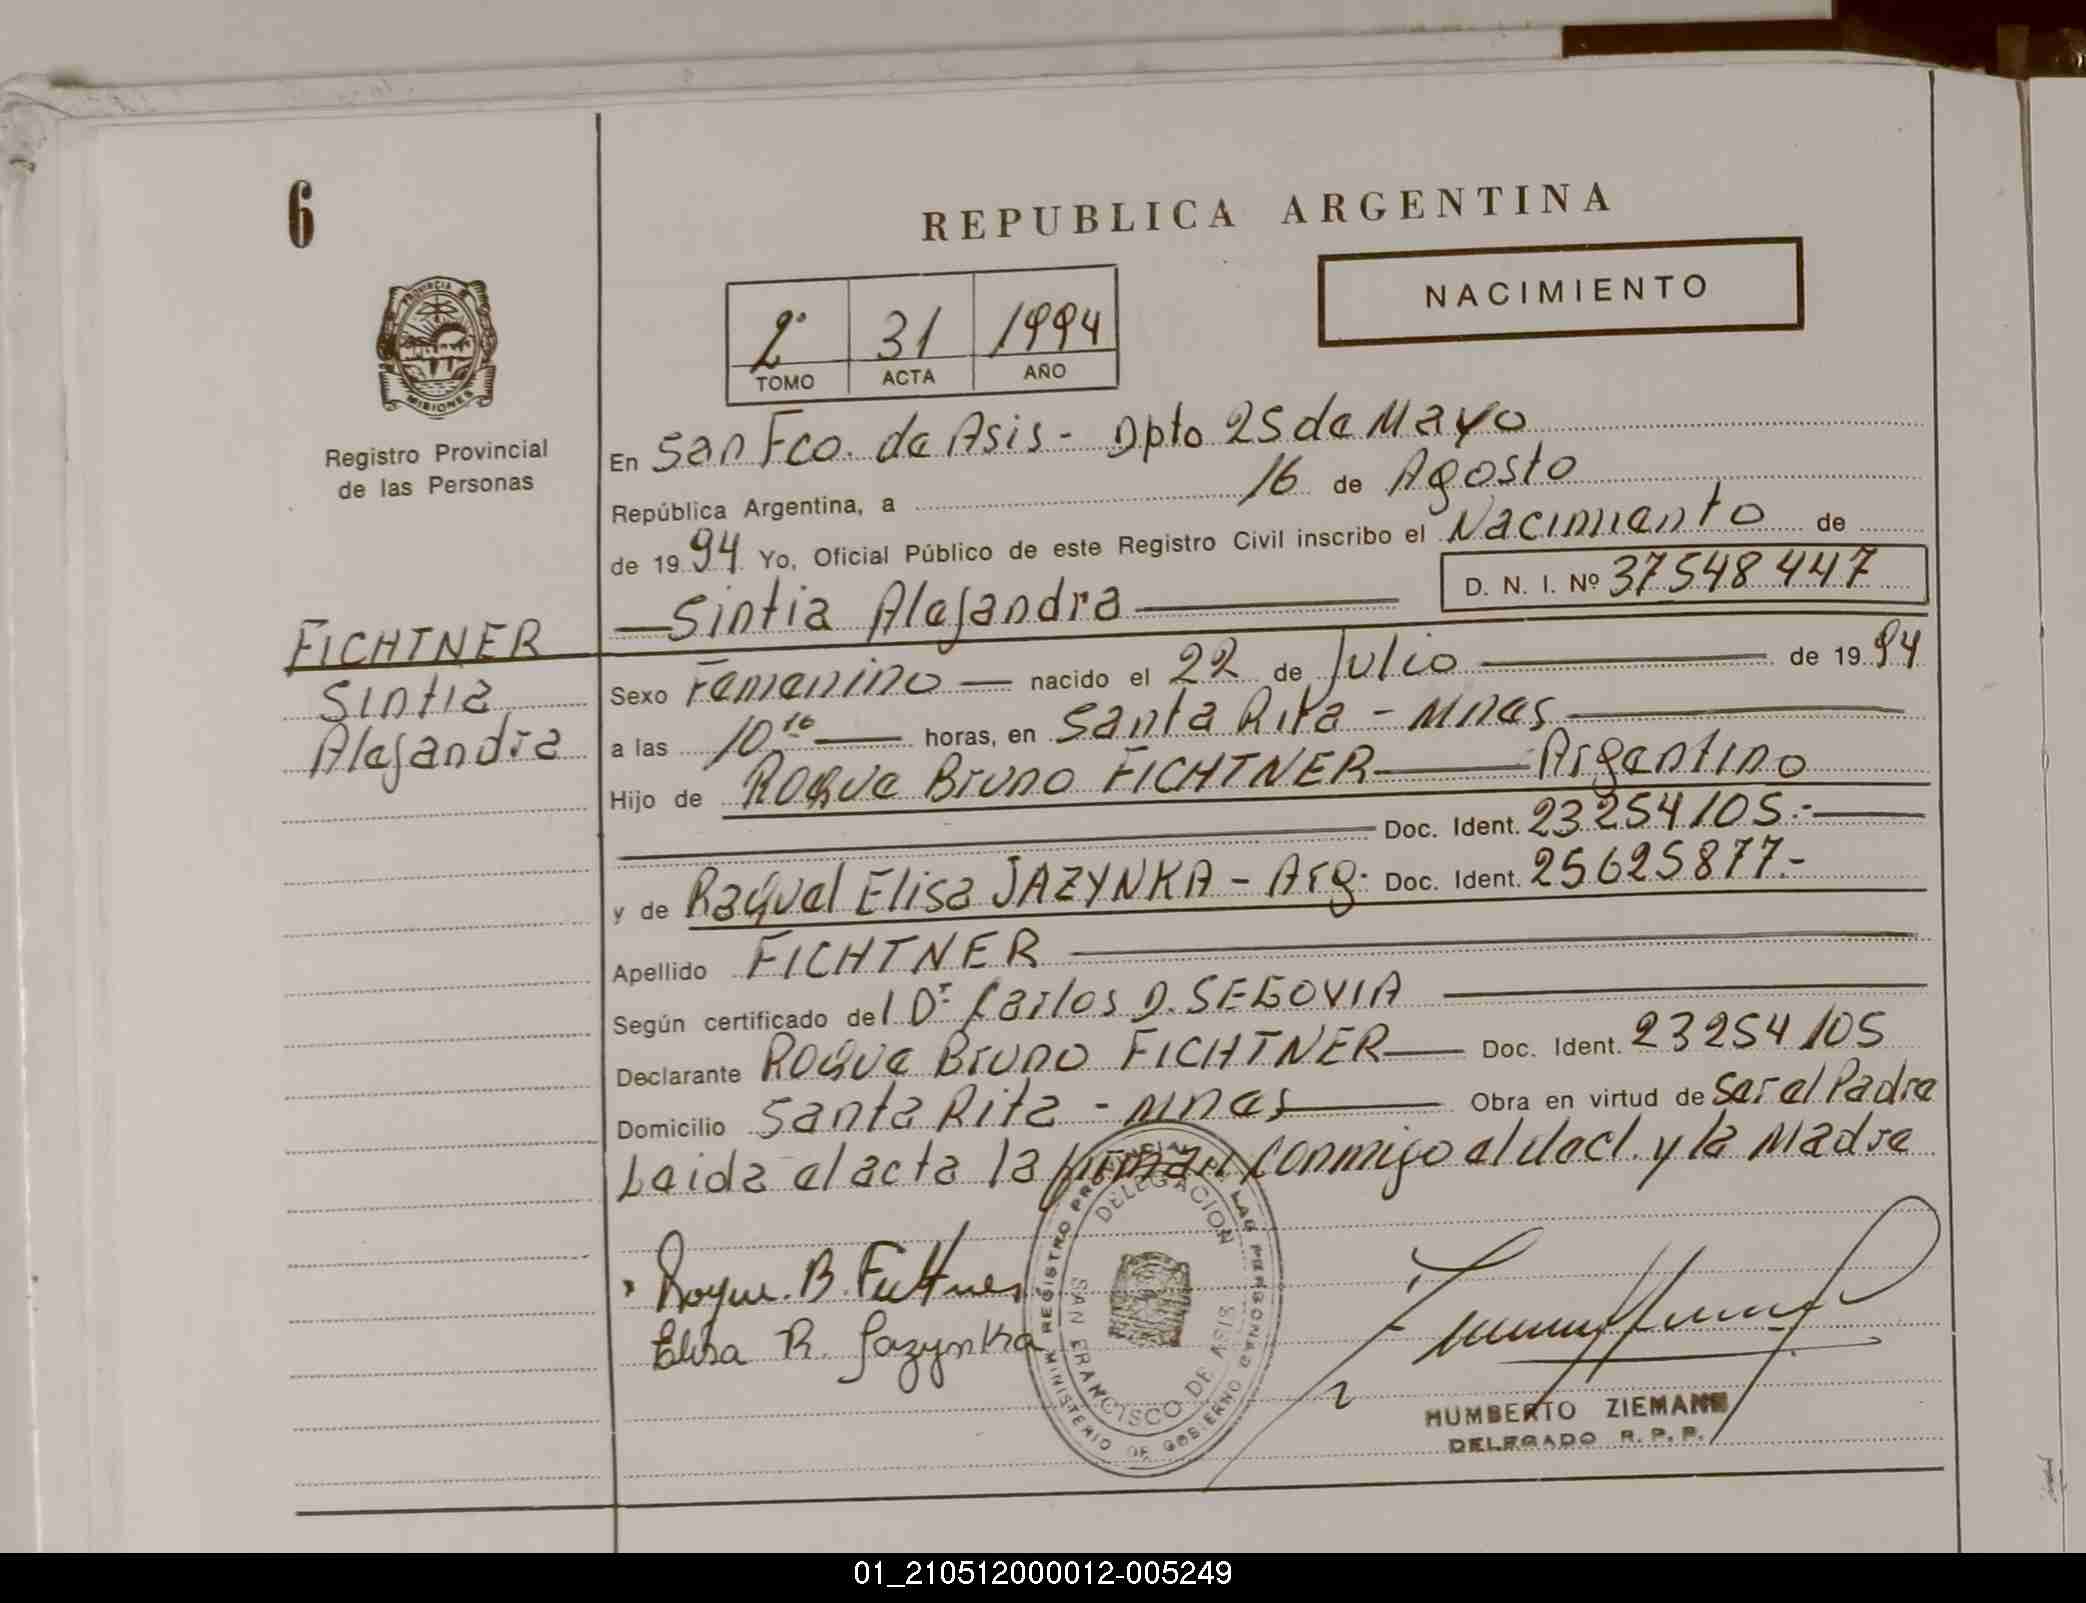 6
REPUBLICA ARGENTINA
NACIMIENTO
2º 31 1994
TOMO ACTA AÑO
PROVINCIA DE
MISIONES
Registro Provincial
de las Personas
En San Fco. de Asis - Dpto 25 de Mayo
República Argentina, a 16 de Agosto
de 1994 Yo, Oficial Público de este Registro Civil inscribo el Nacimiento de
D. N. I. Nº 37548447
Sintia Alejandra
FICHTNER
Sintia
Alejandra
Sexo Femenino nacido el 22 de Julio de 1994
a las 10,16 horas, en Santa Rita - Mnes
Hijo de Roque Bruno FICHTNER Argentino
Doc. Ident. 23254105.-
y de Raquel Elisa JAZYNKA - Arg. Doc. Ident. 25625877.-
Apellido FICHTNER
Según certificado del Dr Carlos D. SEGOVIA
Declarante Roque Bruno FICHTNER Doc. Ident. 23254105
Domicilio Santa Rita - Mnes Obra en virtud de Ser el Padre
Leida el acta la firman conmigo el decl. y la Madre
Roque. B. Fichtner
Elisa R. Jazynka
REGISTRO PROVINCIAL DE LAS PERSONAS
MINISTERIO DE GOBIERNO
DELEGACION
SAN FRANCISCO DE ASIS
HUMBERTO ZIEMANN
DELEGADO R. P. P.
01_210512000012-005249